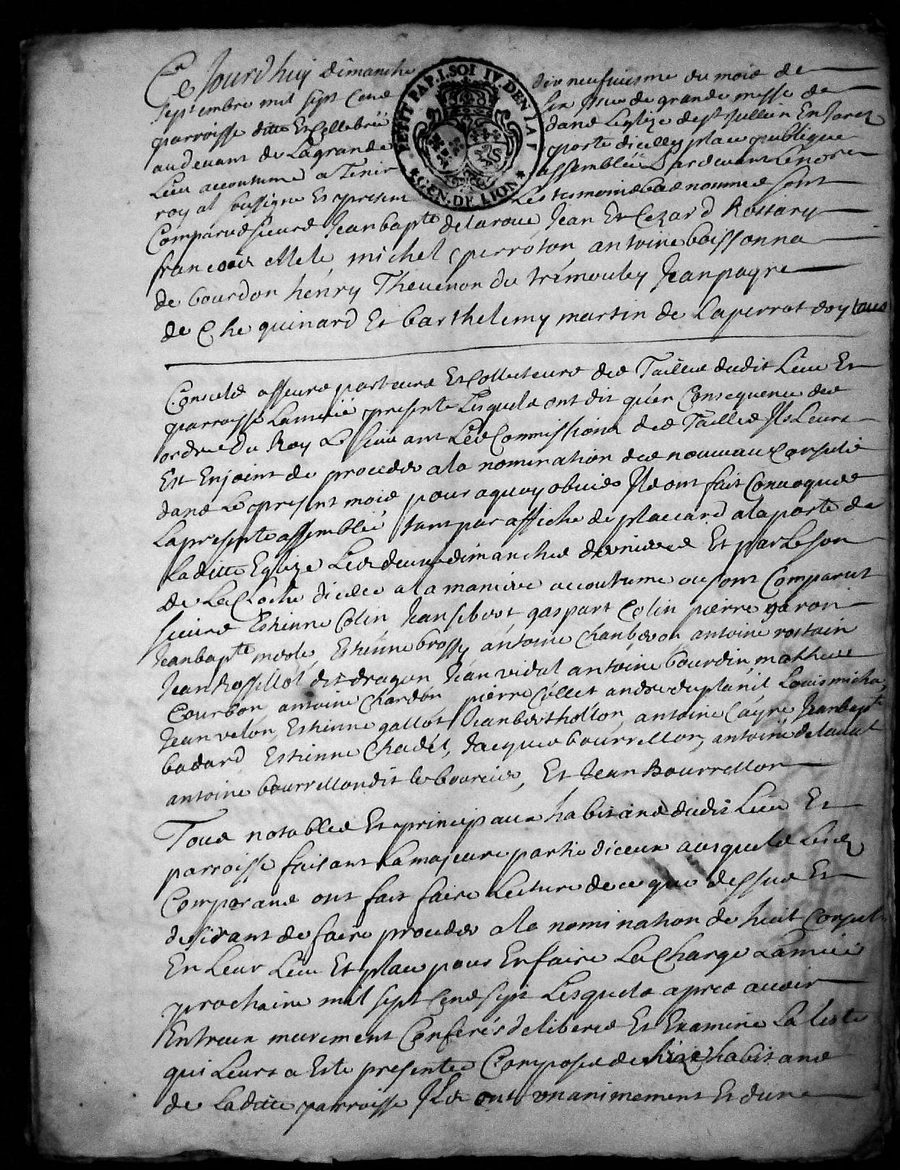 Ce Jourdhuy dimanche dix neufuiesme du mois de
Septembre mil sept Cens six Issue de grande messe de
parroisse ditte Et Cellebréé dans Leglize de st Jullien En Jarez
audeuant de Lagrande porte dicelle place publique
Lieu accoutumé a Tenir assemblée Pardeuant Lenore
royal soussigne Et present Les tesmoins bas nommes sont
Comparus sieurs Jean bapte delaroue Jean Et Cezard Rostary
francois Mele michel perroton antoine boissonna
de bourdon henry Theuenon du trémouley Jean payre
de Chequinard Et barthelemy martin de Laperrotdoy tous
Consuls asseurs parteurs Et Collecteurs des Tailles dudit Lieu Et
parroisse Lannéé presente Lesquels ont dit qu'en Consequence des
ordres du Roy Et suiuant Les Commissions des Tailles Jl Leurs
Est Enjoint de proceder ala nomination des nouveaux Consuls
dans Le present mois pour aquoy obuier Jls ont fait Conuoquer
La presente assembléé tant par affiche de placcard a la porte de
Laditte Eglize Les deux dimanches derniers Et par Le son
de La Cloche dicelle a la maniere accoutumé ou sont Comparus
sieurs Estienne Colin Jean sibert gaspart Colin pierre garon
Jean bapte Estienne brossy antoine Chanberon antoine rostain
Jean Rossillol dit dragon Jean vidal antoine bourdin mathieu
Courbon antoine Chardon pierre Collet andre duplanil Louis micha
Jean velon, Estienne gallot Jean bertholon, antoine Cayre Jean bapt
badard Estienne Chadel, Jacques bourrellon, antoine delalat
antoine bourrellon dit le boureier, Et Jean Bourrellon
Tous notables Et principaux habitans dudit Lieu Et
parroisse faisant La majeure partie diceux ausquels Lesdz
Comparans ont fait faire Lecture de ce que dessus Et
desirant de faire proceder ala nomination de huit Consuls
En Leur Lieu Et place pour En faire La Charge Lannéé
prochaine mil sept Cens sept Lesquels apres auoir
Entreux murement Conferés deliberés Et Examiné La liste
qui Leurs a Esté presenté Composéé de habitans
de Laditte parroisse Jls ont vnanimement Et dune